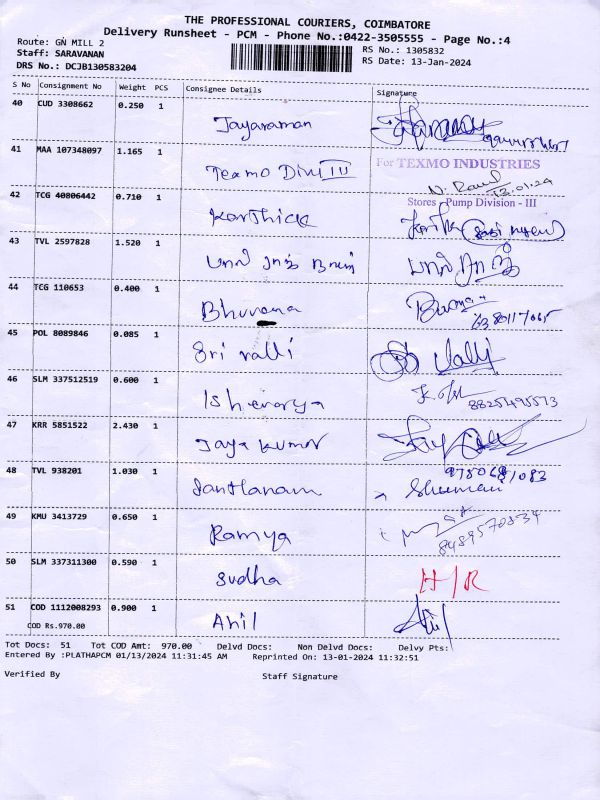 THE PROFESSIONAL COURIERS, COIMBATORE
Delivery Runsheet - PCM - Phone No.:0422-3505555 - Page No.:4
Route: GN MILL 2
Staff: SARAVANAN
DRS No.: DCJB130583204
RS No.: 1305832
RS Date: 13-Jan-2024
S No Consignment No Weight PCS Consignee Details Signature
40 CUD 3308662 0.250 1 Jayaraman
41 MAA 107348097 1.165 1 Texmo Divi III For TEXMO INDUSTRIES
13.01.24
Stores Pump Division - III
42 TCG 40806442 0.710 1 Karthick
43 TVL 2597828 1.520 1
44 TCG 110653 0.400 1 Bhuvana
45 POL 8089846 0.085 1 Sri valli Valli
46 SLM 337512519 0.600 1 Ishwarya 8825495573
47 KRR 5851522 2.430 1 Jaya kumar
48 TVL 938201 1.030 1 Santhanam
49 KMU 3413729 0.650 1 Ramya 8489570834
50 SLM 337311300 0.590 1 Sudha H/R
51 COD 1112008293 0.900 1 Anil
COD Rs.970.00
Tot Docs: 51 Tot COD Amt: 970.00 Delvd Docs: Non Delvd Docs: Delvy Pts:
Entered By :PLATHAPCM 01/13/2024 11:31:45 AM Reprinted On: 13-01-2024 11:32:51
Verified By Staff Signature